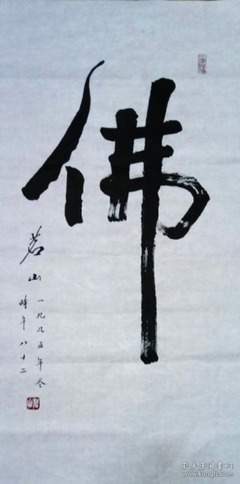 佛
茗山 一九九五年冬
时年八十二